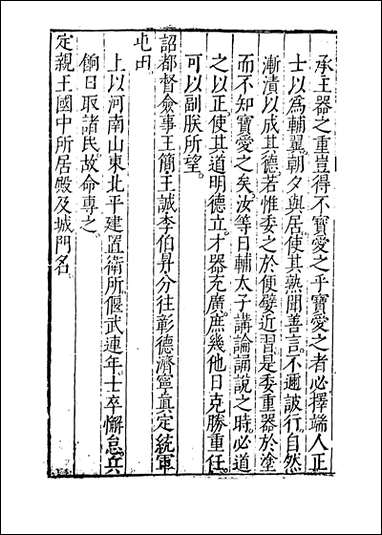 承主器之重豈得不寶愛之乎寶愛之者必擇端人正
士以爲輔翼朝夕與居使其熟聞善言不邇詖行自然
漸漬以成其德若惟委之於便嬖近習是委重器於塗
而不知寶愛之矣汝等日輔太子講論誦說之時必道
之以正使其道明德立才器充廣庶幾他日克勝重任
可以副朕所望
詔都督僉事王簡王誠李伯昇分往彰德濟寧真定統軍
屯田
上以河南山東北平建置衛所偃武連年士卒懈怠兵
餉日取諸民故命專之
定親王國中所居殿及城門名